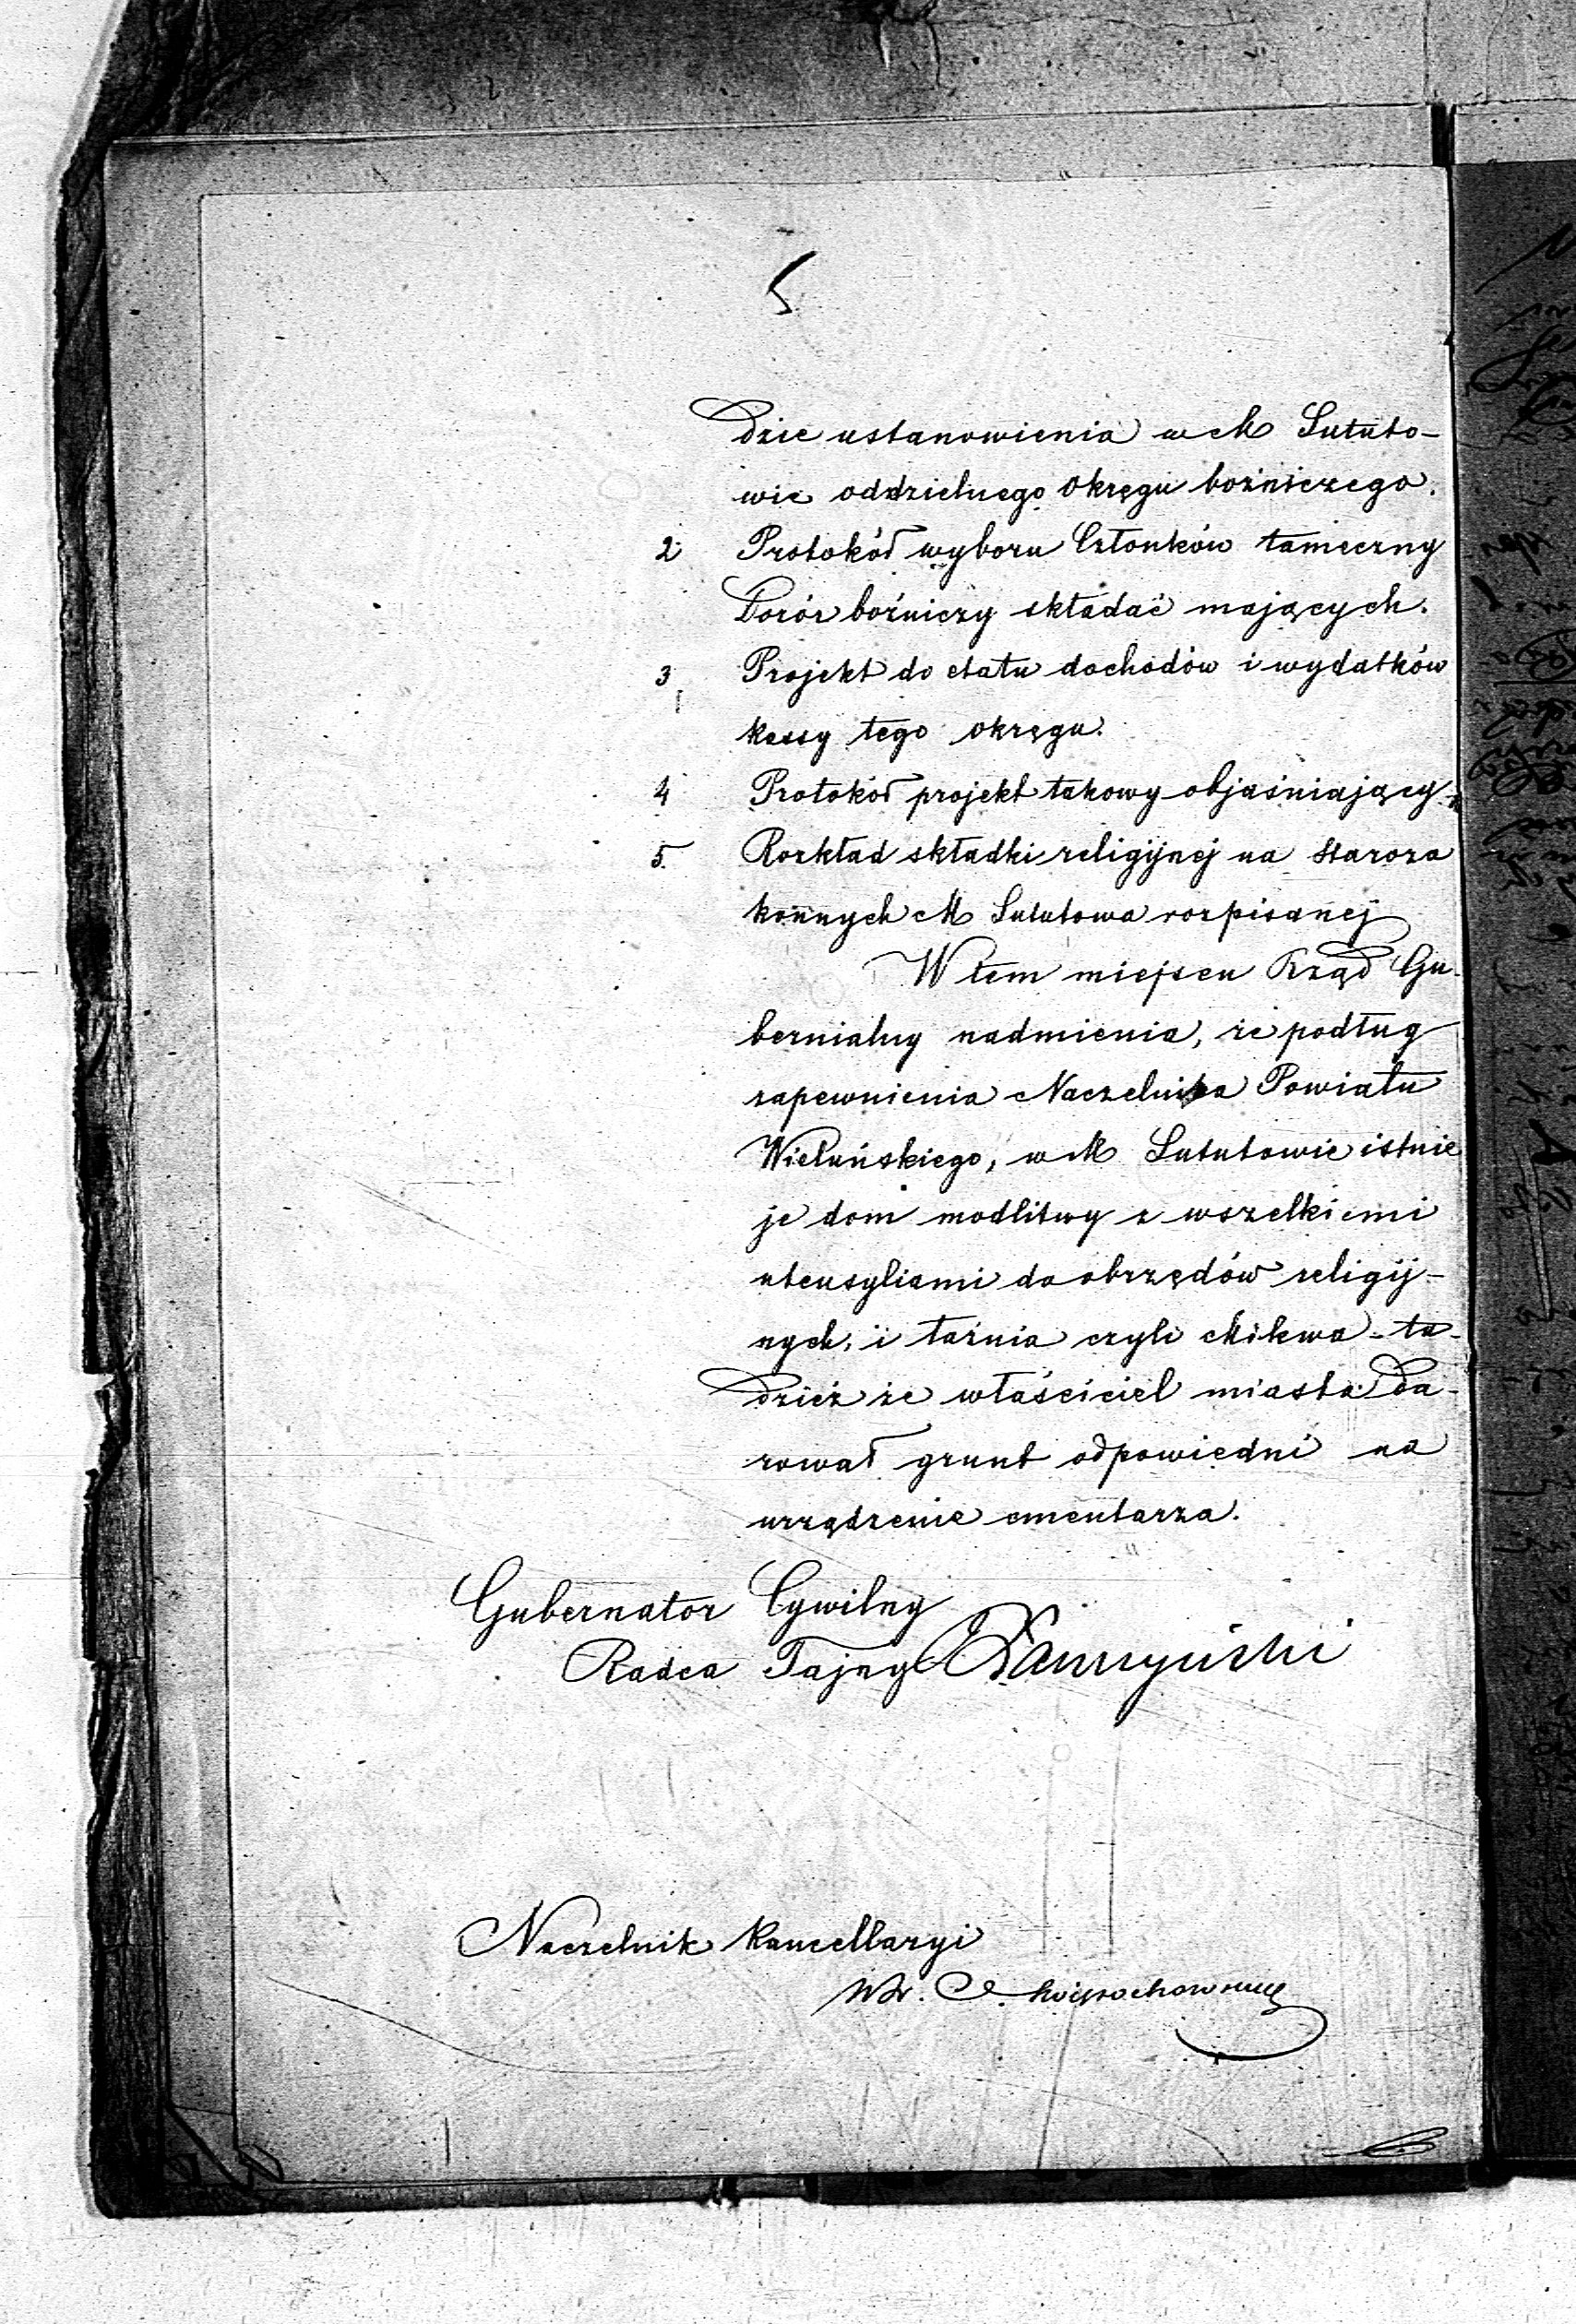 5
dzie ustanowienia w M Lututo-
wie oddzielnego Okręgu bóżniczego.
2 Protokół wyboru Członków tameczny
Dozór bóżniczy składać mających.
3 Projekt do etatu dochodów i wydatków
kassy tego okręgu.
4 Protokół projekt takowy objaśniający
5. Rozkład składki religijnej na Staroza
konnych M Lututowa rozpisanej
W tem miejscu Rząd Gu-
bernialny nadmienia, że podług
zapewnienia Naczelnika Powiatu
Wieluńskiego, w M Lututowie istnie
je dom modlitwy z wszelkiemi
utensyliami do obrzędów religij-
nych, i łaźnia czyli Mikwa - tu-
dzież że właściciel miasta da-
rował grunt odpowiedni na
urządzenie cmentarza.
Gubernator Cywilny
Radca Tajny
Naczelnik Kancellaryi